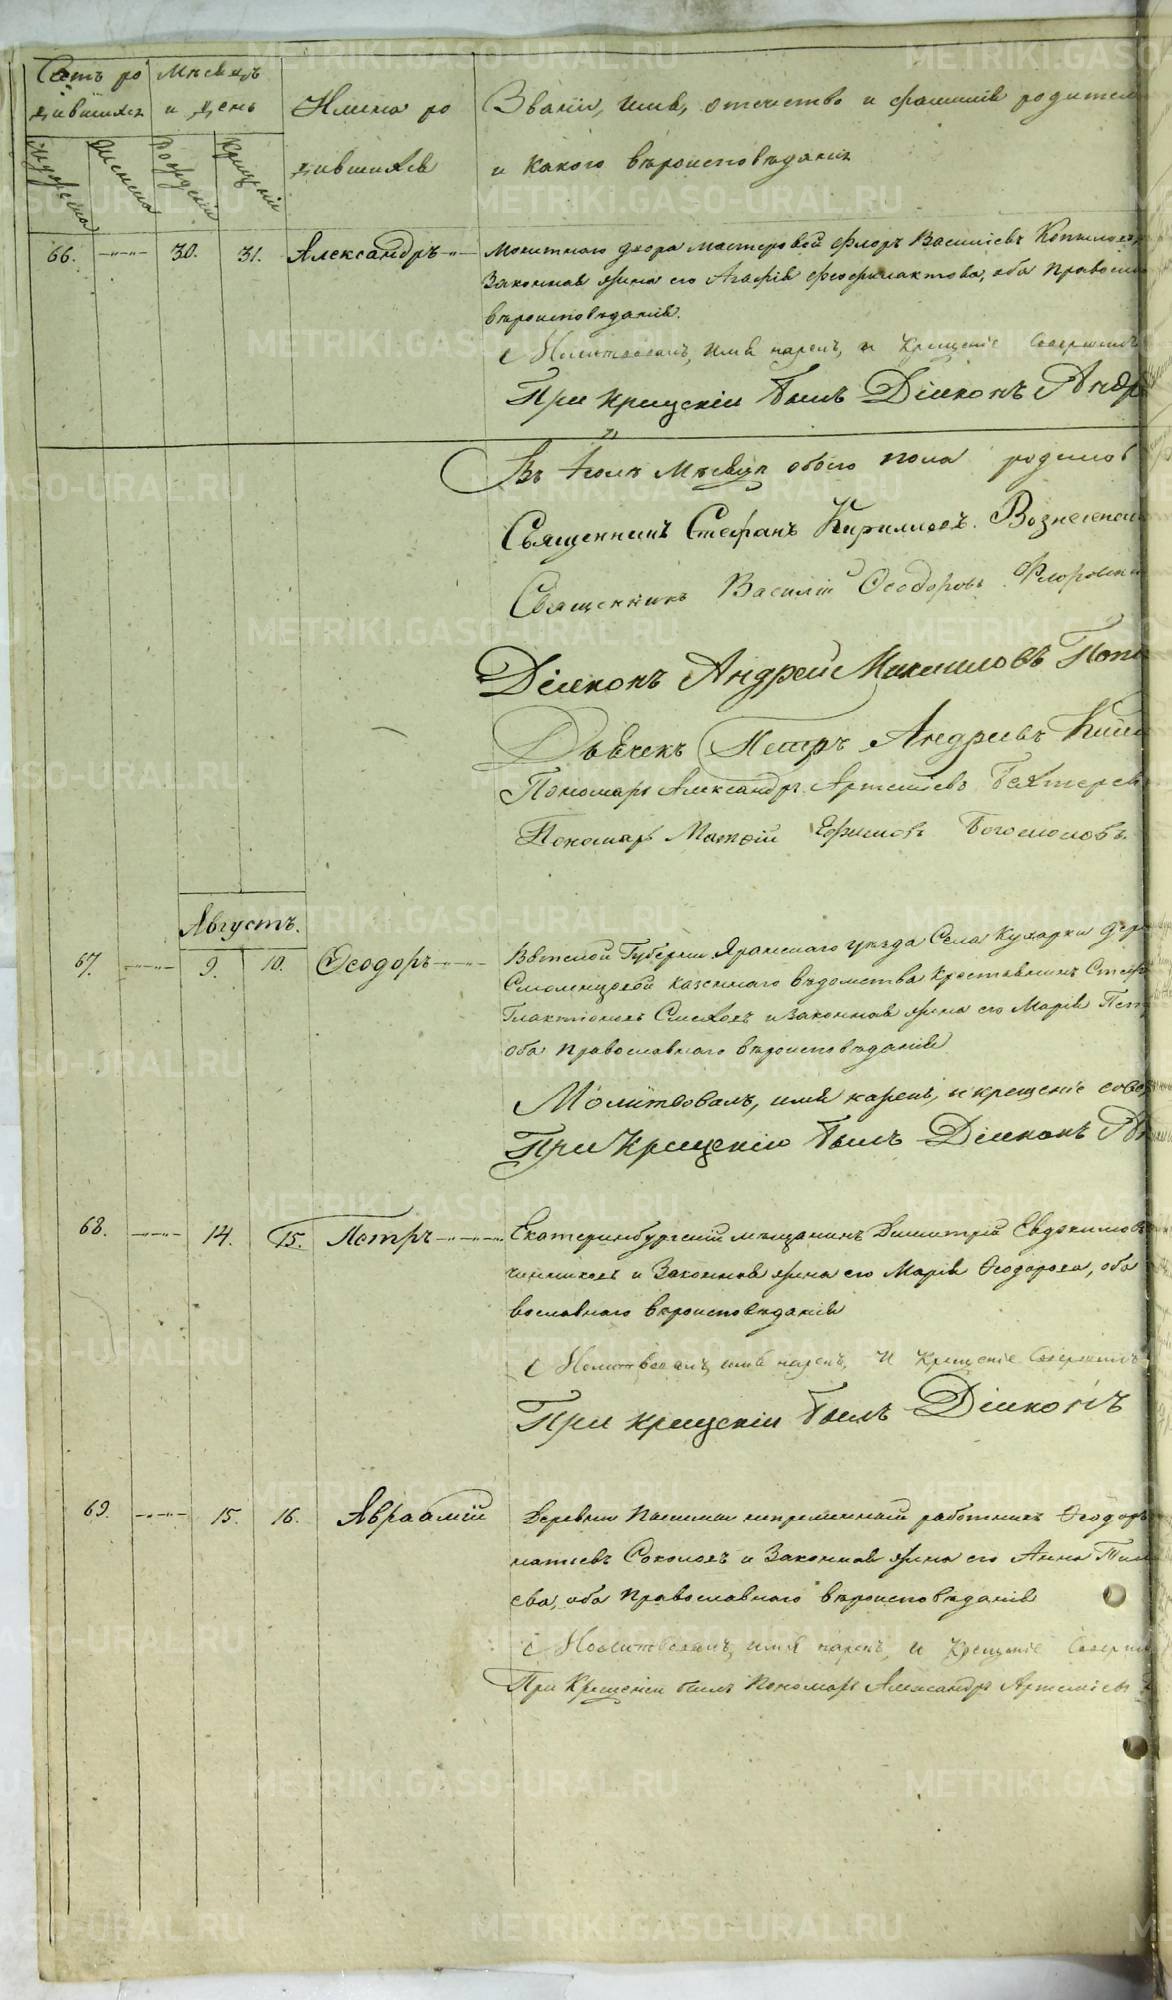 Счетъ ро
дившихся
Мѣсяцъ
и день
Имена ро
дившихся
Званіе, имя, отчество и фамилія родителей
и какого вѣроисповѣданія
мужеска
женска
рожденія
крещенія
66. 30. 31. Александръ Монетнаго двора мастеровой Флоръ Василіевъ Копыловъ
Законная жена его Агафія Феофилактова, оба Правосла
вѣроисповѣданія.
Молитвовалъ, имя нарекъ, и Крещеніе Совершилъ
При крещеніи былъ Діаконъ Андр
Въ Іюлѣ Мѣсяцѣ обоего пола родилос
Священникъ Стефанъ Кирилловъ Вознесенс
Священникъ Василій Ѳеодоровъ Флоровск
Діаконъ Андрей Михаиловъ Попо
Дьячекъ Петръ Андреевъ
Пономарь Александръ Артеміевъ Бехтерев
Пономарь Матѳій Ефимовъ Богомоловъ
Августъ.
67. 9. 10. Ѳеодоръ Вятской Губерніи Яранскаго уѣзда Села Кукарки дер
Смоленцовой казеннаго вѣдомства Крестьянинъ Стеф
Галактіоновъ и Законная жена его Марія Пет
оба Православнаго вѣроисповѣданія
Молитвовалъ, имя нарекъ, и крещеніе сове
При Крещеніи былъ Діаконъ Ан
68. 14. 15. Петръ Екатеринбургскій мѣщанинъ Димитрій Евдокимовъ
чинниковъ и Законная жена его Марія Ѳеодорова, оба
вославнаго вѣроисповѣданія
Молитвовалъ, имя нарекъ, И Крещеніе Совершилъ
При крещеніи былъ Діаконъ
69. 15. 16. Авраамій Деревни непремѣнный работникъ Ѳеодоръ
натіевъ Соколовъ и Законная жена его Анна Тим
ева, оба Православнаго вѣроисповѣданія
Молитвовалъ, имя нарекъ, и Крещеніе Соверши
При Крещеніи былъ Пономарь Александръ Артеміевъ
METRIKI.GASO-URAL.RU